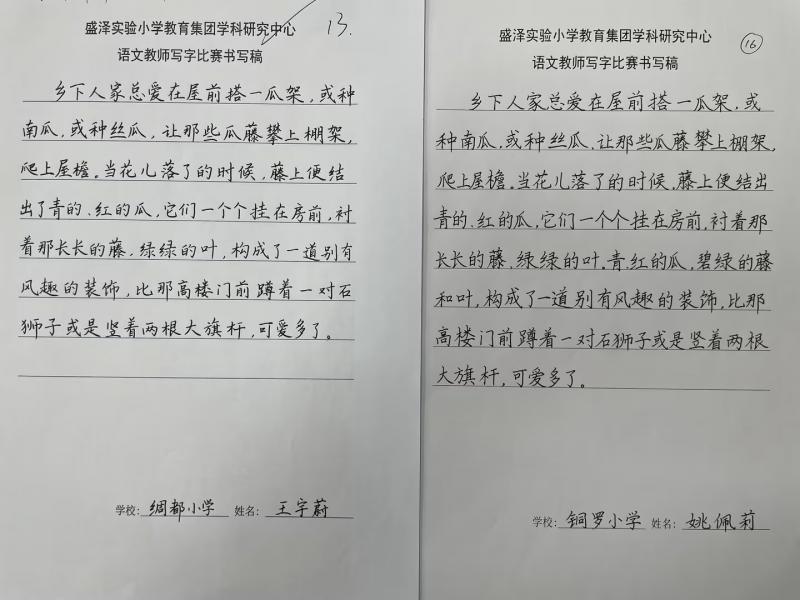 13.
盛泽实验小学教育集团学科研究中心
语文教师写字比赛书写稿
乡下人家总爱在屋前搭一瓜架，或种
南瓜，或种丝瓜，让那些瓜藤攀上棚架，
爬上屋檐。当花儿落了的时候，藤上便结
出了青的、红的瓜，它们一个个挂在房前，衬
着那长长的藤，绿绿的叶，构成了一道别有
风趣的装饰，比那高楼门前蹲着一对石
狮子或是竖着两根大旗杆，可爱多了。
学校：绸都小学 姓名：王宇蔚
16
盛泽实验小学教育集团学科研究中心
语文教师写字比赛书写稿
乡下人家总爱在屋前搭一瓜架，或
种南瓜，或种丝瓜，让那些瓜藤攀上棚架，
爬上屋檐。当花儿落了的时候，藤上便结出
青的、红的瓜，它们一个个挂在房前，衬着那
长长的藤，绿绿的叶。青、红的瓜，碧绿的藤
和叶，构成了一道别有风趣的装饰，比那
高楼门前蹲着一对石狮子或是竖着两根
大旗杆，可爱多了。
学校：铜罗小学 姓名：姚佩莉